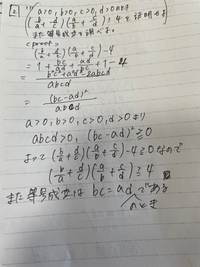 a>0, b>0, c>0, d>0のとき
(b/a + d/c)(a/b + c/d) ≧ 4 を証明せよ
また等号成立を調べよ。
<proof>
(b/a + d/c)(a/b + c/d) - 4
= 1 + bc/ad + ad/bc + 1 - 4
= b²c² + a²d² - 2abcd / abcd
= (bc-ad)² / abcd
a>0, b>0, c>0, d>0 より
abcd>0, (bc-ad)² ≧ 0
よって (b/a + d/c)(a/b + c/d) - 4 ≧ 0 なので
(b/a + d/c)(a/b + c/d) ≧ 4
また等号成立は bc = ad である
のとき